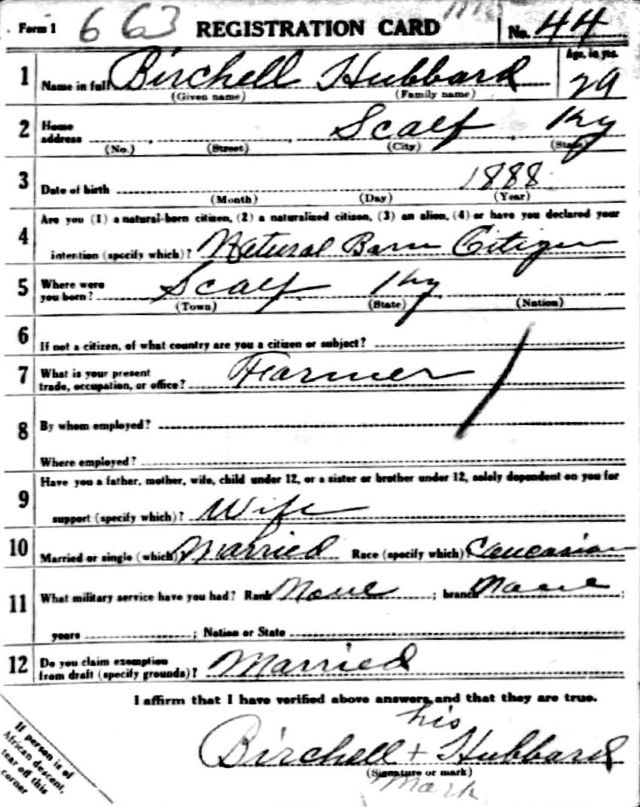 Form 1 663 REGISTRATION CARD No. 44
1 Name in full Birchell Hubbard Age, in yrs. 29
(Given name) (Family name)
2 Home address Scalf Ky
(No.) (Street) (City) (State)
3 Date of birth 1888
(Month) (Day) (Year)
Are you (1) a natural-born citizen, (2) a naturalized citizen, (3) an alien, (4) or have you declared your
4 intention (specify which)? Natural Born Citizen
5 Where were you born? Scalf Ky
(Town) (State) (Nation)
6 If not a citizen, of what country are you a citizen or subject?
7 What is your present trade, occupation, or office? Farmer
8 By whom employed?
Where employed?
Have you a father, mother, wife, child under 12, or a sister or brother under 12, solely dependent on you for
9 support (specify which)? Wife
10 Married or single (which) Married Race (specify which) Caucasian
11 What military service have you had? Rank None ; branch None ;
years ; Nation or State
12 Do you claim exemption from draft (specify grounds)? Married
I affirm that I have verified above answers and that they are true.
his
Birchell + Hubbard
(Signature or mark)
mark
If person is of
African descent,
tear off this
corner